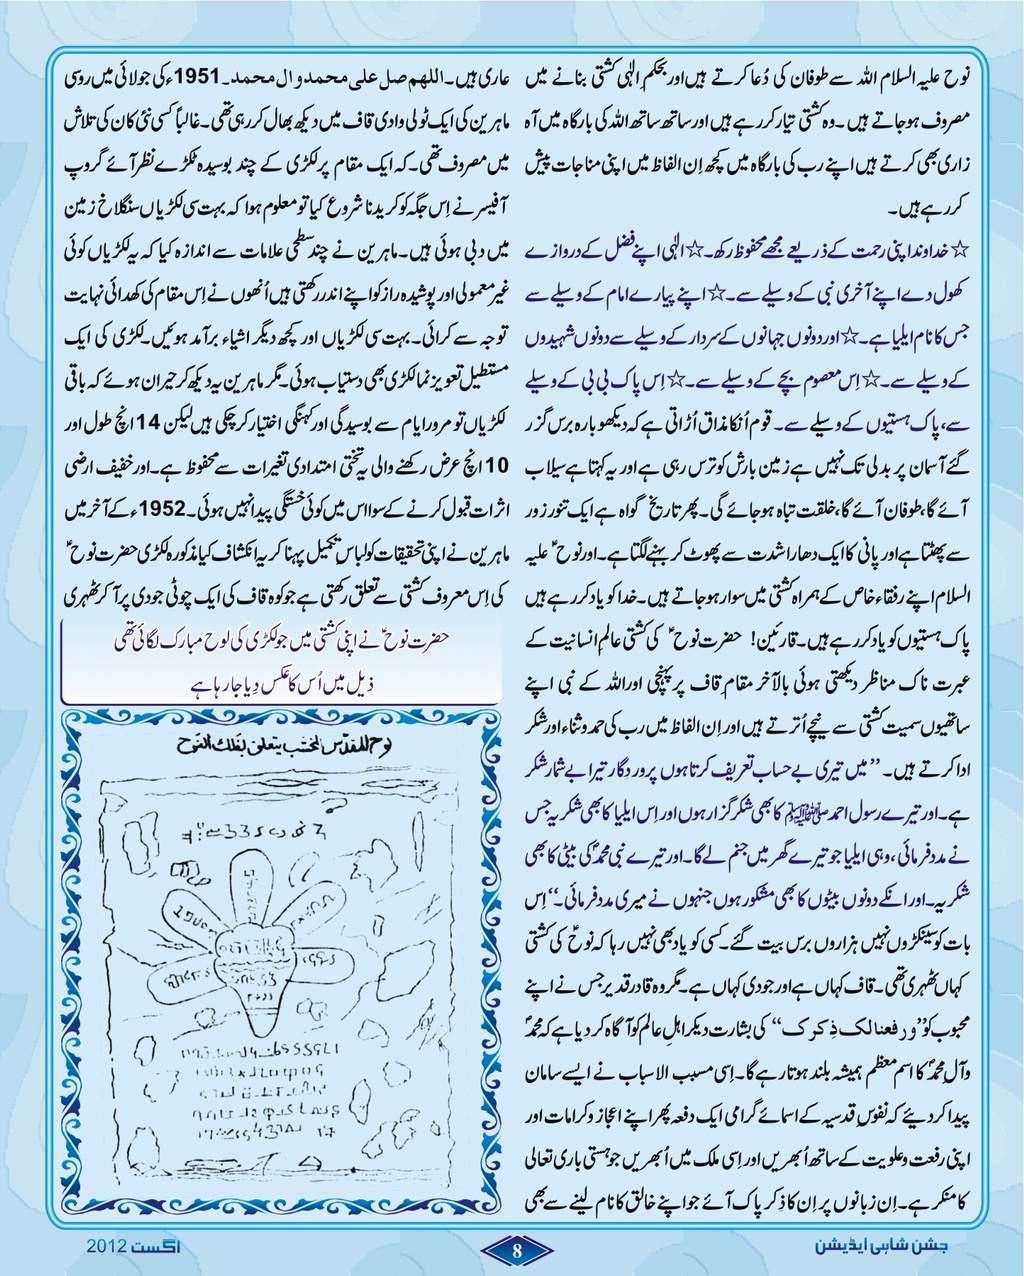 نوح علیہ السلام اللہ سے طوفان کی دُعا کرتے ہیں اور بحکمِ الٰہی کشتی بنانے میں
مصروف ہوجاتے ہیں۔ وہ کشتی تیار کررہے ہیں اور ساتھ ساتھ اللہ کی بارگاہ میں آہ
زاری بھی کرتے ہیں اپنے رب کی بارگاہ میں کچھ اِن الفاظ میں اپنی مناجات پیش
کررہے ہیں۔
☆ خداوند اپنی رحمت کے ذریعے مجھے محفوظ رکھ۔ ☆ الٰہی اپنے فضل کے دروازے
کھول دے اپنے آخری نبی کے وسیلے سے۔ ☆ اپنے پیارے امام کے وسیلے سے
جس کا نام ایلیا ہے۔ ☆ اور دونوں جہانوں کے سردار کے وسیلے سے دونوں شہیدوں
کے وسیلے سے۔ ☆ اِس معصوم بچے کے وسیلے سے۔ ☆ اِس پاک بی بی کے وسیلے
سے، پاک ہستیوں کے وسیلے سے۔ قوم اُنکا مذاق اُڑاتی ہے کہ دیکھو بارہ برس گزر
گئے آسمان پر بدلی تک نہیں ہے زمین بارش کو ترس رہی ہے اور یہ کہتا ہے سیلاب
آئے گا، طوفان آئے گا، خلقت تباہ ہوجائے گی۔ پھر تاریخ گواہ ہے ایک تنور زور
سے پھٹتا ہے اور پانی کا ایک دھارا شدت سے پھوٹ کر بہنے لگتا ہے۔ اور نوحؑ علیہ
السلام اپنے رفقاء خاص کے ہمراہ کشتی میں سوار ہوجاتے ہیں۔ خدا کو یاد کررہے ہیں
پاک ہستیوں کو یاد کررہے ہیں۔ قارئین! حضرت نوحؑ کی کشتی عالمِ انسانیت کے
عبرت ناک مناظر دیکھتی ہوئی بالآخر مقام ِقاف پر پہنچی اور اللہ کے نبی اپنے
ساتھیوں سمیت کشتی سے نیچے اُترتے ہیں اور اِن الفاظ میں رب کی حمد و ثناء اور شکر
ادا کرتے ہیں۔ ’’میں تیری بے حساب تعریف کرتا ہوں پروردگار تیرا بے شمار شکر
ہے۔ اور تیرے رسول احمد ﷺ کا بھی شکر گزار ہوں اور اِس ایلیا کا بھی شکریہ جس
نے مدد فرمائی، وہی ایلیا جو تیرے گھر میں جنم لے گا۔ اور تیرے نبی محمدؐ کی بیٹی کا بھی
شکریہ۔ اور انکے دونوں بیٹوں کا بھی مشکور ہوں جنہوں نے میری مدد فرمائی۔‘‘ اِس
بات کو سینکڑوں نہیں ہزاروں برس بیت گئے۔ کسی کو یاد بھی نہیں رہا کہ نوحؑ کی کشتی
کہاں ٹھہری تھی۔ قاف کہاں ہے اور جودی کہاں ہے۔ مگر وہ قادر قدیر جس نے اپنے
محبوب کو ’’ورفعنالک ذِکرک‘‘ کی بشارت دیکر اہلِ عالم کو آگاہ کر دیا ہے کہ محمدؐ
و آلِ محمدؐ کا اسم معظم ہمیشہ بلند ہوتا رہے گا۔ اِسی مسبب الاسباب نے ایسے سامان
پیدا کر دیئے کہ نفوسِ قدسیہ کے اسمائے گرامی ایک دفعہ پھر اپنے اعجاز و کرامات اور
اپنی رفعت و علویت کے ساتھ اُبھریں اور اِسی ملک میں اُبھریں جو ہستی باری تعالی
کا منکر ہے۔ اِن زبانوں پر اِن کا ذِکر پاک آئے جو اپنے خالق کا نام لینے سے بھی
عاری ہیں۔ اللھم صل علی محمد و ال محمد۔ 1951ء کی جولائی میں روسی
ماہرین کی ایک ٹولی وادی قاف میں دیکھ بھال کررہی تھی۔ غالباً کسی نئی کان کی تلاش
میں مصروف تھی۔ کہ ایک مقام پر لکڑی کے چند بوسیدہ ٹکڑے نظر آئے گروپ
آفیسر نے اِس جگہ کو کریدنا شروع کیا تو معلوم ہوا کہ بہت سی لکڑیاں سنگلاخ زمین
میں دبی ہوئی ہیں۔ ماہرین نے چند سطحی علامات سے اندازہ کیا کہ یہ لکڑیاں کوئی
غیر معمولی اور پوشیدہ راز کو اپنے اندر رکھتی ہیں اُنھوں نے اِس مقام کی کھدائی نہایت
توجہ سے کرائی۔ بہت سی لکڑیاں اور کچھ دیگر اشیاء برآمد ہوئیں۔ لکڑی کی ایک
مستطیل تعویز نما لکڑی بھی دستیاب ہوئی۔ مگر ماہرین یہ دیکھ کر حیران ہوئے کہ باقی
لکڑیاں تو مرور ایام سے بوسیدگی اور کہنگی اختیار کرچکی ہیں لیکن 14 انچ طول اور
10 انچ عرض رکھنے والی یہ تختی امتدادی تغیرات سے محفوظ ہے۔ اور خفیف ارضی
اثرات قبول کرنے کے سوا اس میں کوئی خستگی پیدا نہیں ہوئی۔ 1952ء کے آخر میں
ماہرین نے اپنی تحقیقات کو لباسِ تکمیل پہنا کر یہ انکشاف کیا مذکورہ لکڑی حضرت نوحؑ
کی اِس معروف کشتی سے تعلق رکھتی ہے جو کوہ قاف کی ایک چوٹی جودی پر آکر ٹھہری
حضرت نوحؑ نے اپنی کشتی میں جو لکڑی کی لوح مبارک لگائی تھی
ذیل میں اُس کا عکس دِیا جا رہا ہے
جشن شاہی ایڈیشن
8
اگست 2012